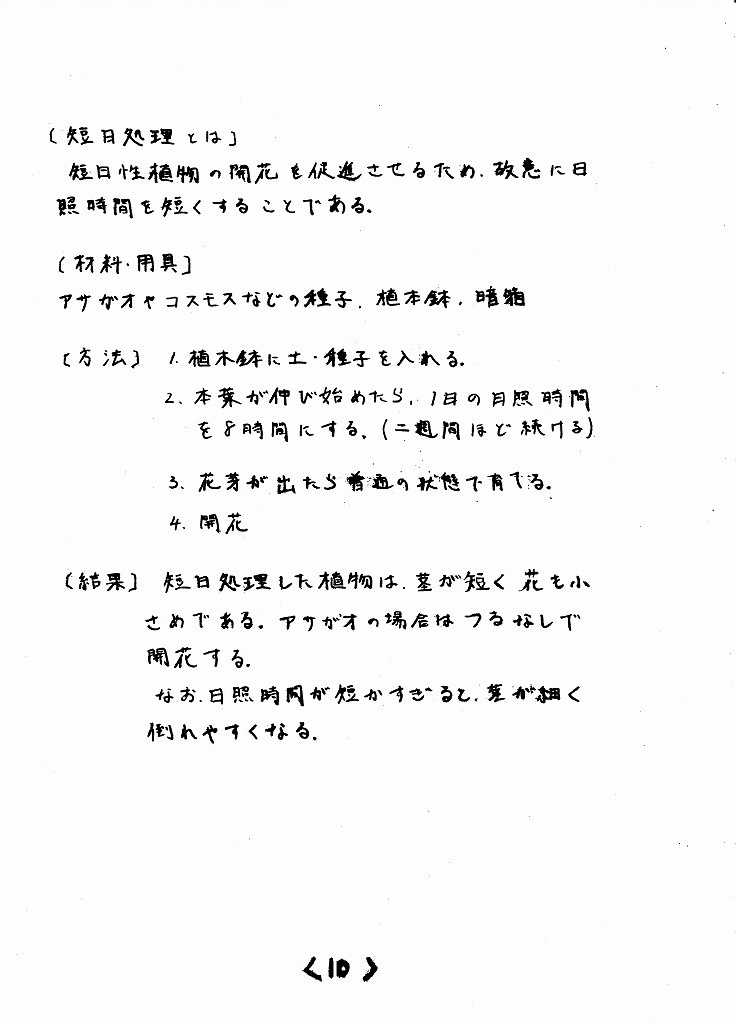 〔短日処理とは〕
短日性植物の開花を促進させるため、故意に日
照時間を短くすることである。
〔材料・用具〕
アサガオやコスモスなどの種子、植木鉢、暗箱
〔方法〕 1. 植木鉢に土・種子を入れる。
2. 本葉が伸び始めたら、1日の日照時間
を8時間にする。(二週間ほど続ける)
3. 花芽が出たら普通の状態で育てる。
4. 開花
〔結果〕 短日処理した植物は、茎が短く花も小
さめである。アサガオの場合はつるなしで
開花する。
なお、日照時間が短かすぎると、茎が細く
倒れやすくなる。
<10>